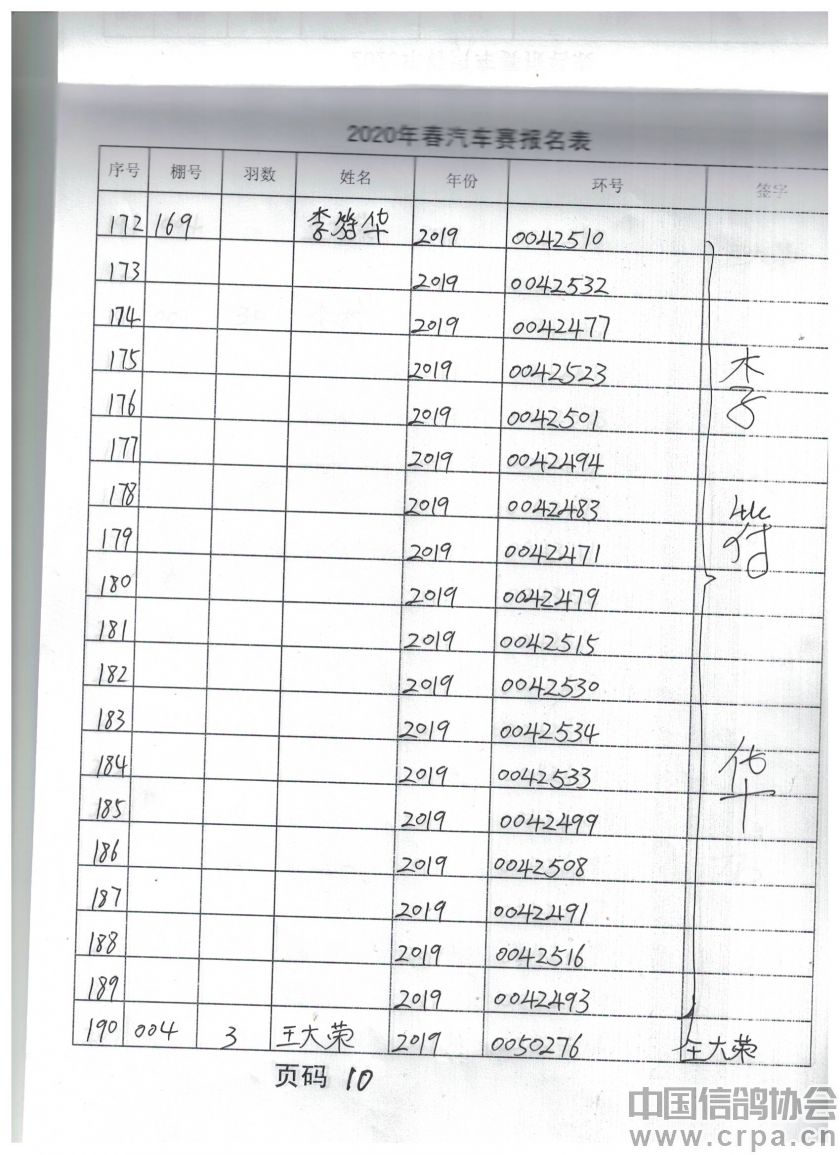 2020年春汽车赛报名表
序号 棚号 羽数 姓名 年份 环号 签字
172 169 李符华 2019 0042510
173 2019 0042532
174 2019 0042477
175 2019 0042523
176 2019 0042501
177 2019 0042494
178 2019 0042483
179 2019 0042471
180 2019 0042479
181 2019 0042515
182 2019 0042530
183 2019 0042534
184 2019 0042533
185 2019 0042499
186 2019 0042508
187 2019 0042491
188 2019 0042516
189 2019 0042493
李符华
190 004 3 王大荣 2019 0050276 王大荣
页码 10
中国信鸽协会
www.crpa.cn